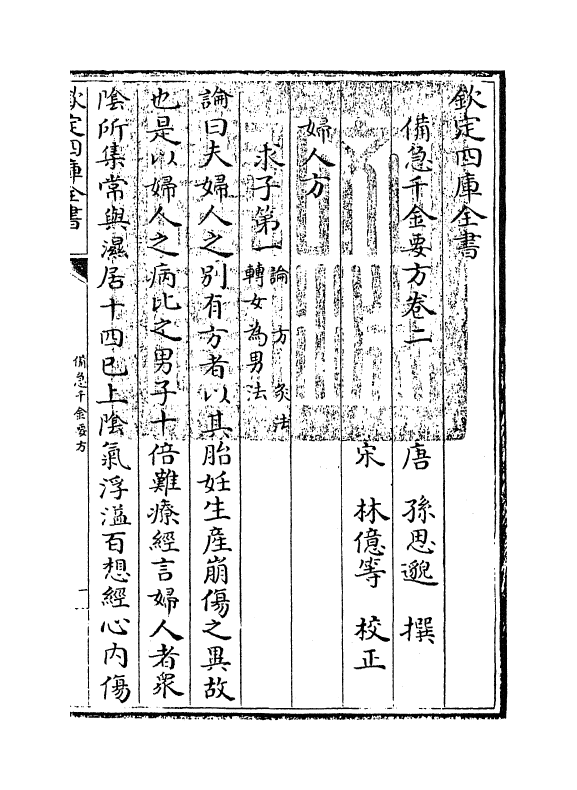 欽定四庫全書
備急千金要方卷二
唐 孫思邈 撰
宋 林億等 校正
婦人方
求子第一
論 方 灸法
轉女為男法
論曰夫婦人之别有方者以其胎妊生産崩傷之異故
也是以婦人之病比之男子十倍難療經言婦人者衆
陰所集常與濕居十四已上陰氣浮溢百想經心内傷
欽定四庫全書
備急千金要方
一